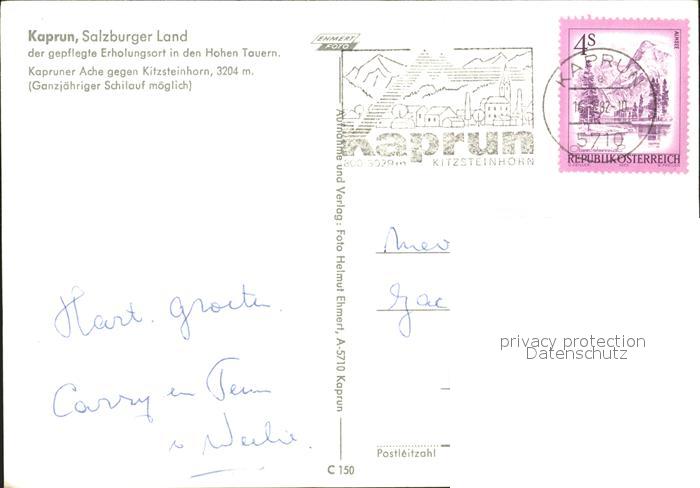 Kaprun, Salzburger Land
der gepflegte Erholungsort in den Hohen Tauern.
Kapruner Ache gegen Kitzsteinhorn, 3204 m.
(Ganzjähriger Schilauf möglich)
EHMERT
FOTO
Kaprun
KITZSTEINHORN
KAPRUN
5710
4S
ALMSEE
REPUBLIK ÖSTERREICH
Aufnahme und Verlag: Foto Helmut Ehmert, A-5710 Kaprun
Hart. Groeten.
Carry en Teun
privacy protection
Datenschutz
Postleitzahl
C 150